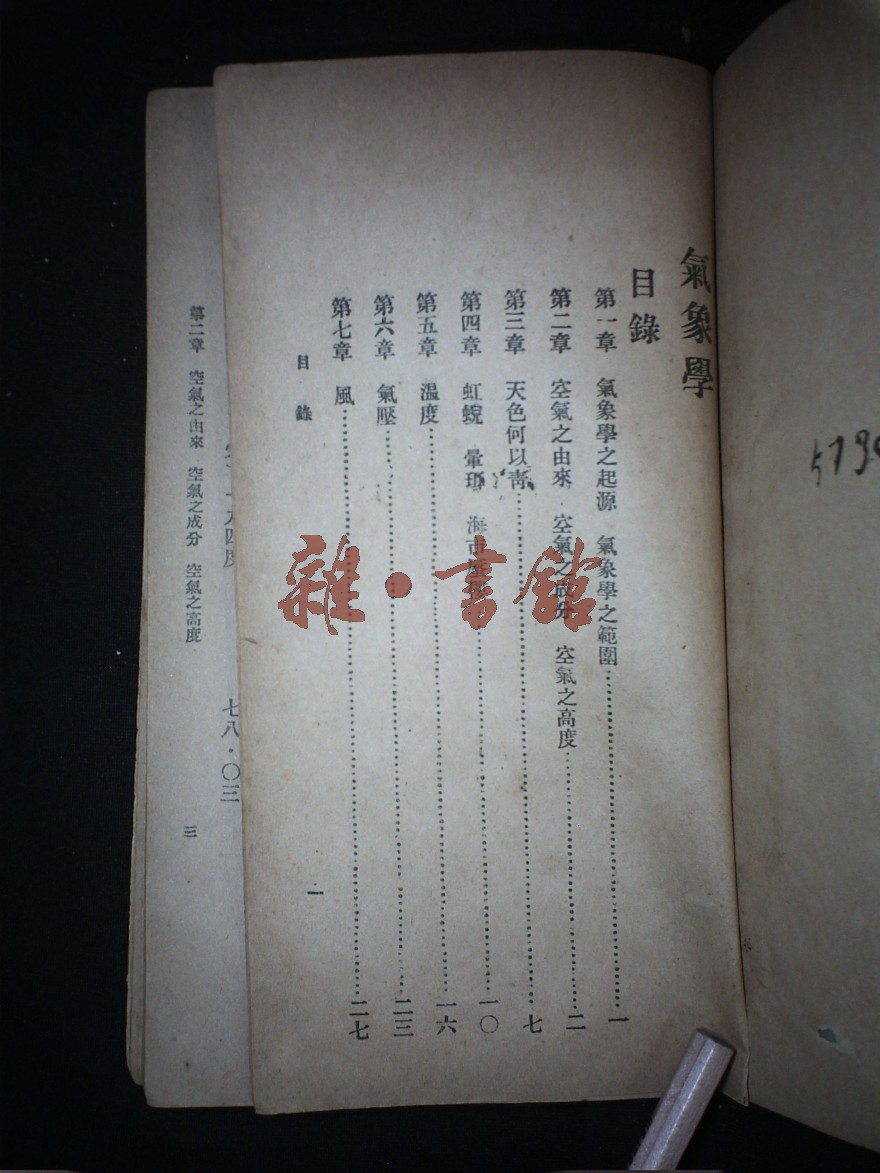 氣象學
目錄
第一章 氣象學之起源 氣象學之範圍……一
第二章 空氣之由來 空氣之成分 空氣之高度……二
第三章 天色何以靑……七
第四章 虹蜺 暈 海市……一〇
第五章 溫度……一六
第六章 氣壓……二三
第七章 風……二七
目錄
一
四度
七八・〇三
第二章 空氣之由來 空氣之成分 空氣之高度
三
雜・書館